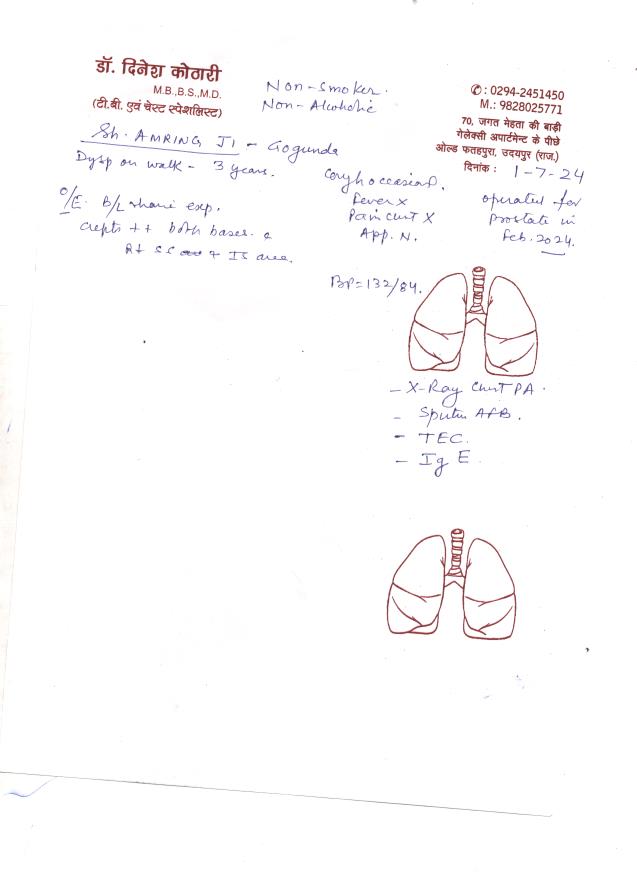 डॉ. दिनेश कोठारी
M.B.,B.S.,M.D.
(टी.बी. एवं चेस्ट स्पेशलिस्ट)
Non-Smoker.
Non-Alcoholic
✆ : 0294-2451450
M.: 9828025771
70, जगत मेहता की बाड़ी
गेलेक्सी अपार्टमेन्ट के पीछे
ओल्ड फतहपुरा, उदयपुर (राज.)
दिनांक : 1-7-24
Sh. AMRING JI - Gogunda
Dysp on walk - 3 years.
Cough occasional.
Fever X
Pain chest X
App. N.
operated for
prostate in
Feb. 2024.
O/E. B/L exp.
Crepts ++ both bases. &
Rt SS + IS area.
BP = 132/84.
- X-Ray Chest PA.
- Sputum AFB.
- TEC.
- Ig E.